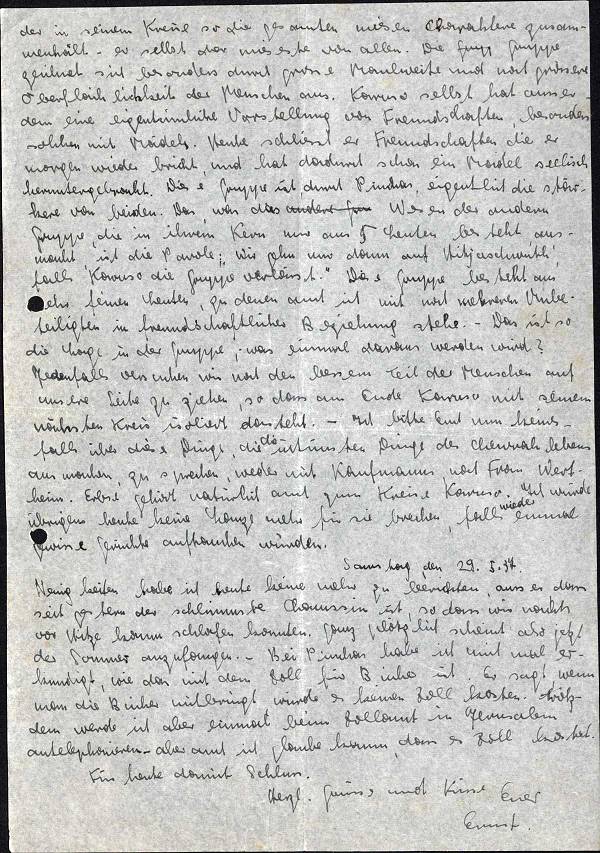 der in seinem Kreise so die gesamten miesen Charaktere zusam-
menhält - er selbst der mieseste von allen. Die Gruppe
zeichnet sich besonders durch grosse Maulweite und noch grössere
Oberflächlichkeit der Menschen aus. Karuso selbst hat ausser-
dem eine eigentümliche Vorstellung von Freundschaften, besonders
solchen mit Mädels. Heute schliesst er Freundschaften die er
morgen wieder bricht, und hat dadurch schon ein Mädel seelisch
heruntergebracht. Diese Gruppe ist, durch Pinchas, eigentlich die stär-
kere von beiden. Das, was das Wesen der andern
Gruppe, die in ihrem Kern nur aus 5 Leuten besteht aus-
macht ist die Parole: "Wir gehn nur dann auf Hitjaschwuth,
falls Karuso die Gruppe verlässt." Diese Gruppe besteht aus
sehr feinen Leuten, zu denen auch ich mit noch mehreren Unbe-
teiligten in freundschaftlicher Beziehung stehe. - Das ist so
die Lage in der Gruppe, was einmal daraus werden wird?
Jedenfalls versuchen wir noch den bessern Teil der Menschen auf
unsere Seite zu ziehen, so dass am Ende Karuso mit seinem
nächsten Kreis isoliert dasteht. - Ich bitte Euch nun keines-
falls über diese Dinge, die da intimsten Dinge des Chewrahlebens
ausmachen, zu sprechen, weder mit Kaufmanns noch Frau Wert-
heim. Erbse gehört natürlich auch zum Kreise Karuso. Ich würde
übrigens heute keine Lanze mehr für sie brechen, falls wieder einmal
gewisse Gerüchte auftauchen würden.
Samstag, den 29. 5. 37.
Neuigkeiten habe ich heute keine mehr zu berichten, ausser dass
seit gestern der schlimmste Chamssin ist, so dass wir nachts
vor Hitze kaum schlafen konnten. Ganz plötzlich scheint also jetzt
der Sommer anzufangen. - Bei Pinchas habe ich mich mal er-
kundigt, wie das mit dem Zoll für Bücher ist. Er sagt wenn
man die Bücher mitbringt würde es keinen Zoll kosten. Trotz-
dem werde ich aber einmal beim Zollamt in Jerusalem
antelephonieren - aber auch ich glaube kaum, dass es Zoll kostet.
Für heute damit Schluss.
Herzl. Grüsse und Küsse Euer
Ernst.